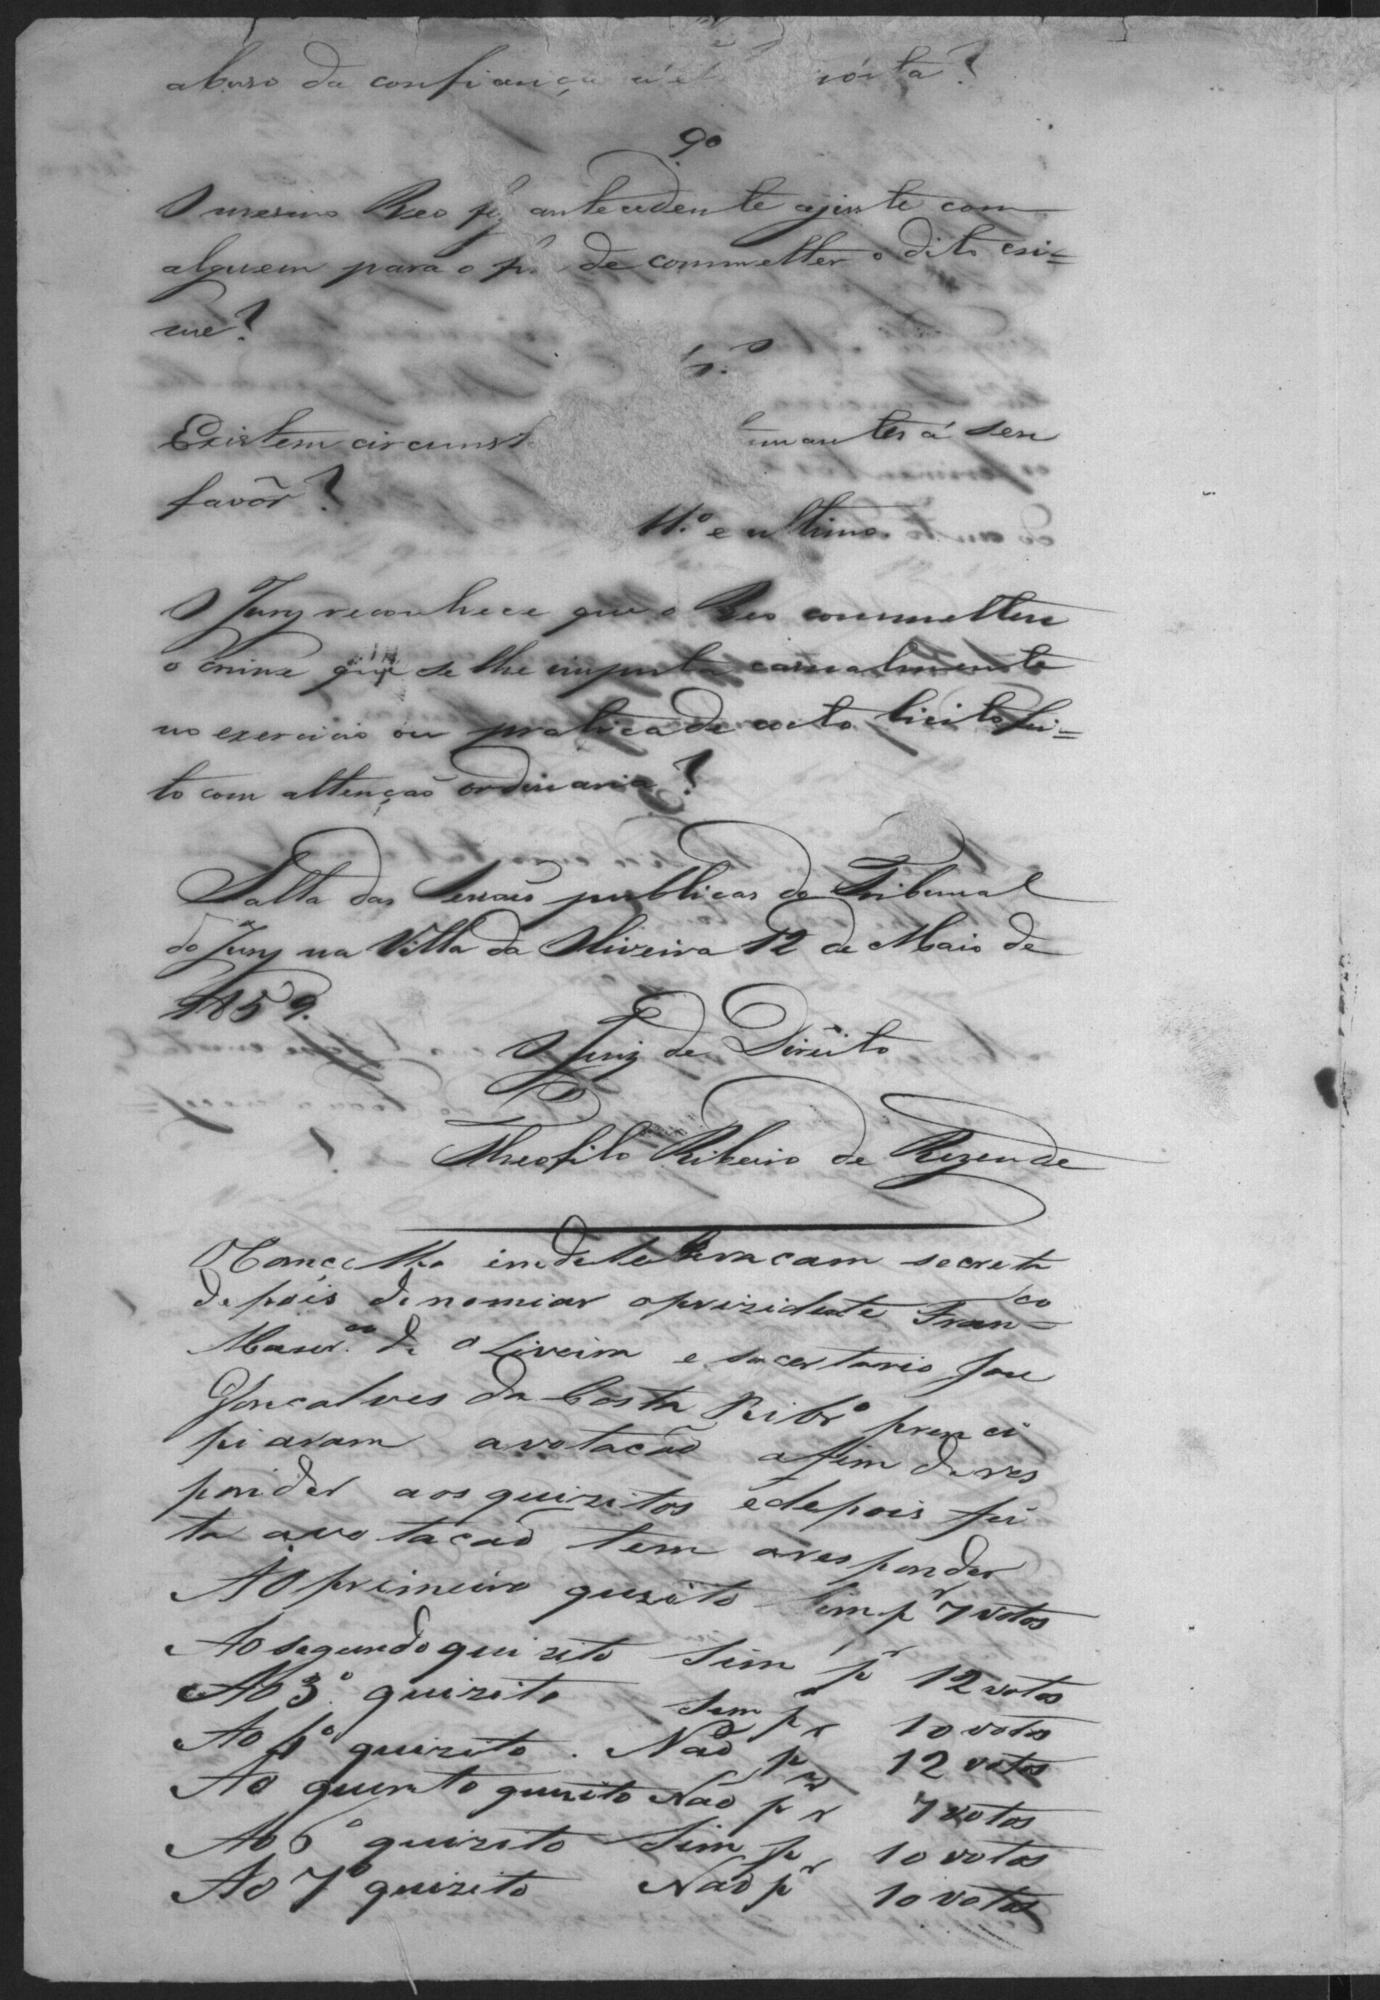 abuso da confiança n'el
9º
O mesmo Reo fez antecedente ajuste com
alguem para o fim de commetter o dito cri=
me?
Existem circunst tenuantes á seu
favôr?
11.º e ultimo
O Jury reconhece que o Reo commetteu
o crime que se lhe imputa casualmente
no exercicio ou pratica de acto licito fei=
to com attenção ordinaria?
Salla das Sessões publicas do Tribunal
do Jury na Villa da Oliveira 12 de Maio de
1859.
O Juiz de Direito
Theofilo Ribeiro de Rezende
O Conçelho em deleberacam secreta
depois de nomiar o prizidente Fran=co
de Oliveira e sacertario Joze
Gonçalves da Costa Ribrº prenci
piaram a votacaõ a fim de res
ponder aos quizitos e depois fei
ta a votacaõ tem a responder
Ao primeiro quizito Sim pr 7 votos
Ao segundo quizito Sim pr 12 votos
Ao 3º. quizito Sim pr 10 votos
Ao 4º quizito. Naõ pr 12 votos
Ao quinto quizito Naõ pr 7 votos
Ao 6º quizito Sim pr 10 votos
Ao 7º quizito Naõ pr 10 votos